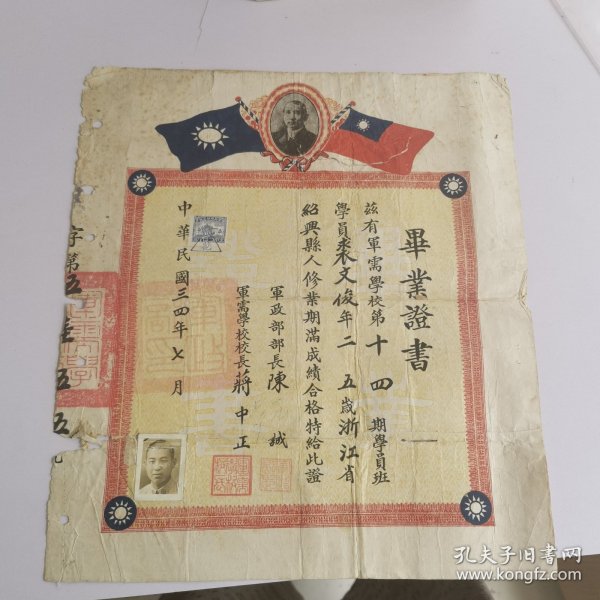 畢業證書
茲有軍需學校第十四期學員班
學員裘文俊年二五歲浙江省
紹興縣人修業期滿成績合格特給此證
軍政部部長陳誠
軍需學校校長蔣中正
中華民國三四年七月
字第五
五
孔夫子旧书网
www.kongfz.com